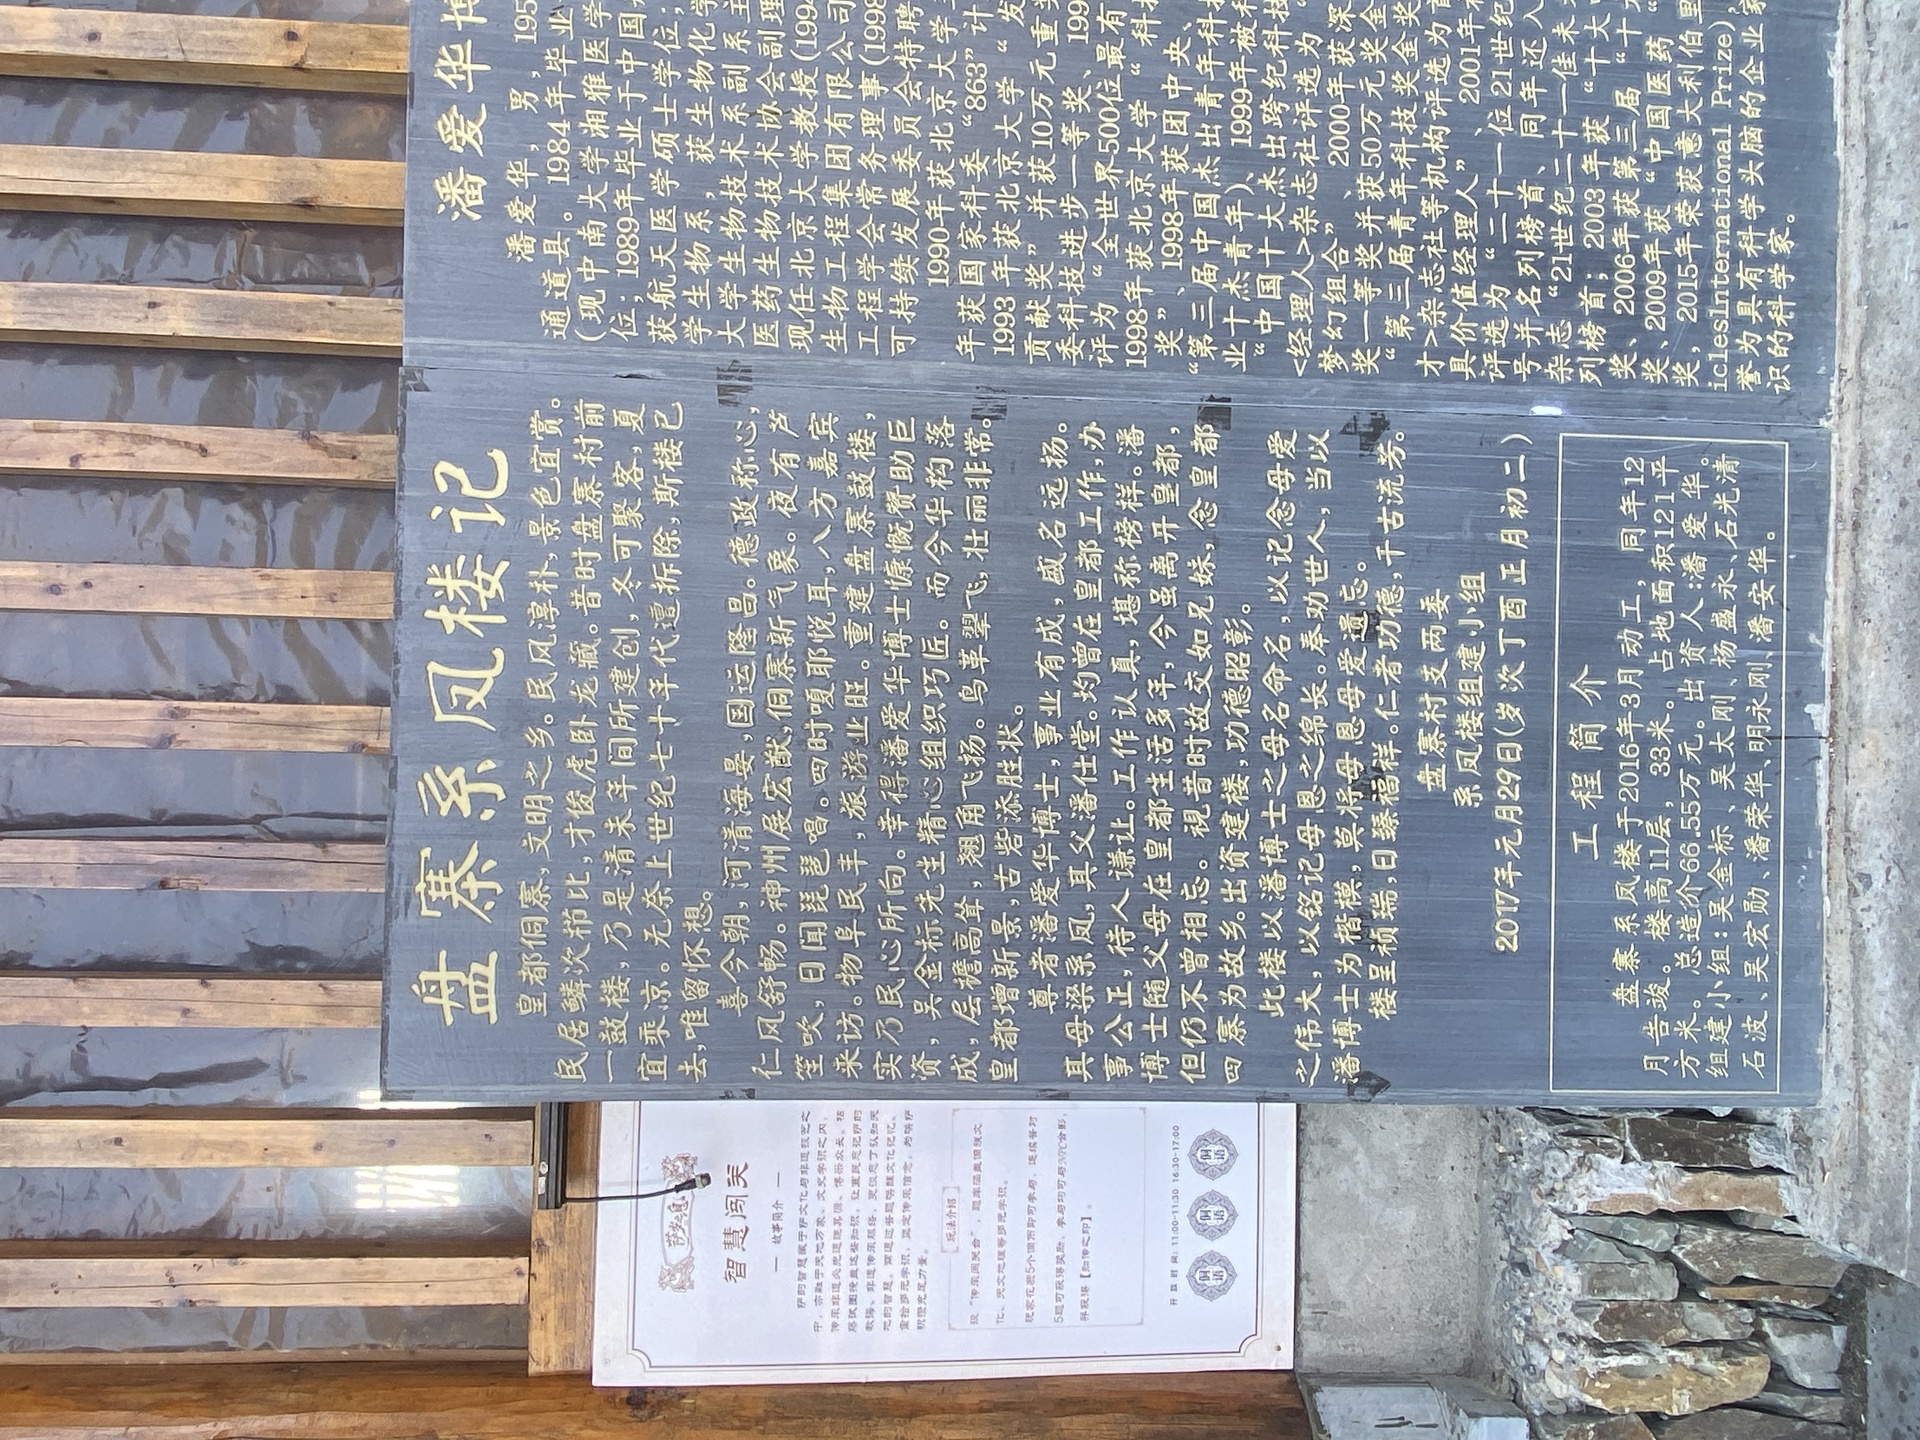 盘寨系凤楼记
皇都侗寨，文明之乡。民风淳朴，景色宜赏。
民居鳞次栉比，才俊虎卧龙藏。昔时盘寨村前
一鼓楼，乃是清末年间所建创，冬可聚客，夏
宜乘凉。无奈上世纪七十年代遭拆除，斯楼已
去，唯留怀想。
喜今朝，河清海晏，国运隆昌。德政称心，
仁风舒畅。神州展宏猷，侗寨新气象。夜有芦
笙吹，日闻琵琶唱。四时嗄耶悦耳，八方嘉宾
来访。物阜民丰，旅游业旺。重建盘寨鼓楼，
实乃民心所向。幸得潘爱华博士慷慨赞助巨
资，吴金标先生精心组织巧匠。而今华构落
成，层檐高耸，翘角飞扬。鸟革翚飞，壮丽非常。
皇都增新景，古砦添胜状。
尊者潘爱华博士，事业有成，威名远扬。
其母梁系凤，其父潘仕堂。灼曾在皇都工作，办
事公正，待人谦让。工作认真，堪称榜样。潘
博士随父母在皇都生活多年，今虽离开皇都，
但仍不曾相忘。視昔时故交如兄妹，念皇都
四寨为故乡。出资建楼，功德昭彰。
此楼以潘博士之母名命名，以记念母爱
之伟大，以铭记母恩之绵长。奉劝世人，当以
潘博士为楷模，莫将母恩母爱遗忘。
楼呈祯瑞，日臻福祥。仁者功德，千古流芳。
盘寨村支两委
系凤楼组建小组
2017年元月29日(岁次丁酉正月初二)
工程简介
盘寨系凤楼于2016年3月动工，同年12
月告竣。楼高11层，33米。占地面积121平
方米。总造价66.55万元。出资人：潘爱华。
组建小组：吴金标、吴太刚、杨盛永、石光清
石波、吴宏勋、潘荣华、明永刚、潘安华。
潘爱华博
潘爱华，男，195
通道县。1984年毕业
(现中南大学湘雅医学
位；1989年毕业于中国
获航天医学硕士学位；
学生物系，获生物化学
大学生物技术系副系主
医药生物技术协会副理
现任北京大学教授(1994
生物工程集团有限公司
工程学会常务理事(1998
可持续发展委员会特聘
1990年获北京大学
年获国家科委“863”计
1993年获北京大学“发
贡献奖”并获10万元重
委科技进步一等奖、199
评为“全世界500位最有
1998年获北京大学“科
奖”、1998年获团中央、
“第三届中国杰出青年科技
业十杰青年)、1999年被
“中国十大杰出跨纪科技
<经理人>杂志社评选为
梦幻组合”、2000年获深
奖一等奖并获50万元奖金
“第三届青年科技奖金奖
才>杂志社等机构评选为
具价值经理人”、2001年
评选为“二十一位21世纪
号并名列榜首、同年还入
杂志“21世纪二十一佳未
列榜首；2003年获“十大
奖、2006年获第三届“十
奖、2009年获“中国医药
奖，2015年荣获意大利伯里
iclesInternational Prize)，
誉为具有科学头脑的企业家
识的科学家。
萨岁之息
智慧闯关
— 故事简介 —
玩法介绍
开放时间：11:00-11:30 16:30-17:00
侗语
侗语
侗语